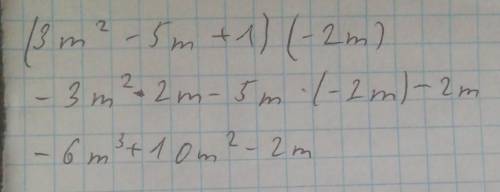 (3m² - 5m + 1) (-2m)
- 3m² · 2m - 5m · (-2m) - 2m
- 6m³ + 10m² - 2m